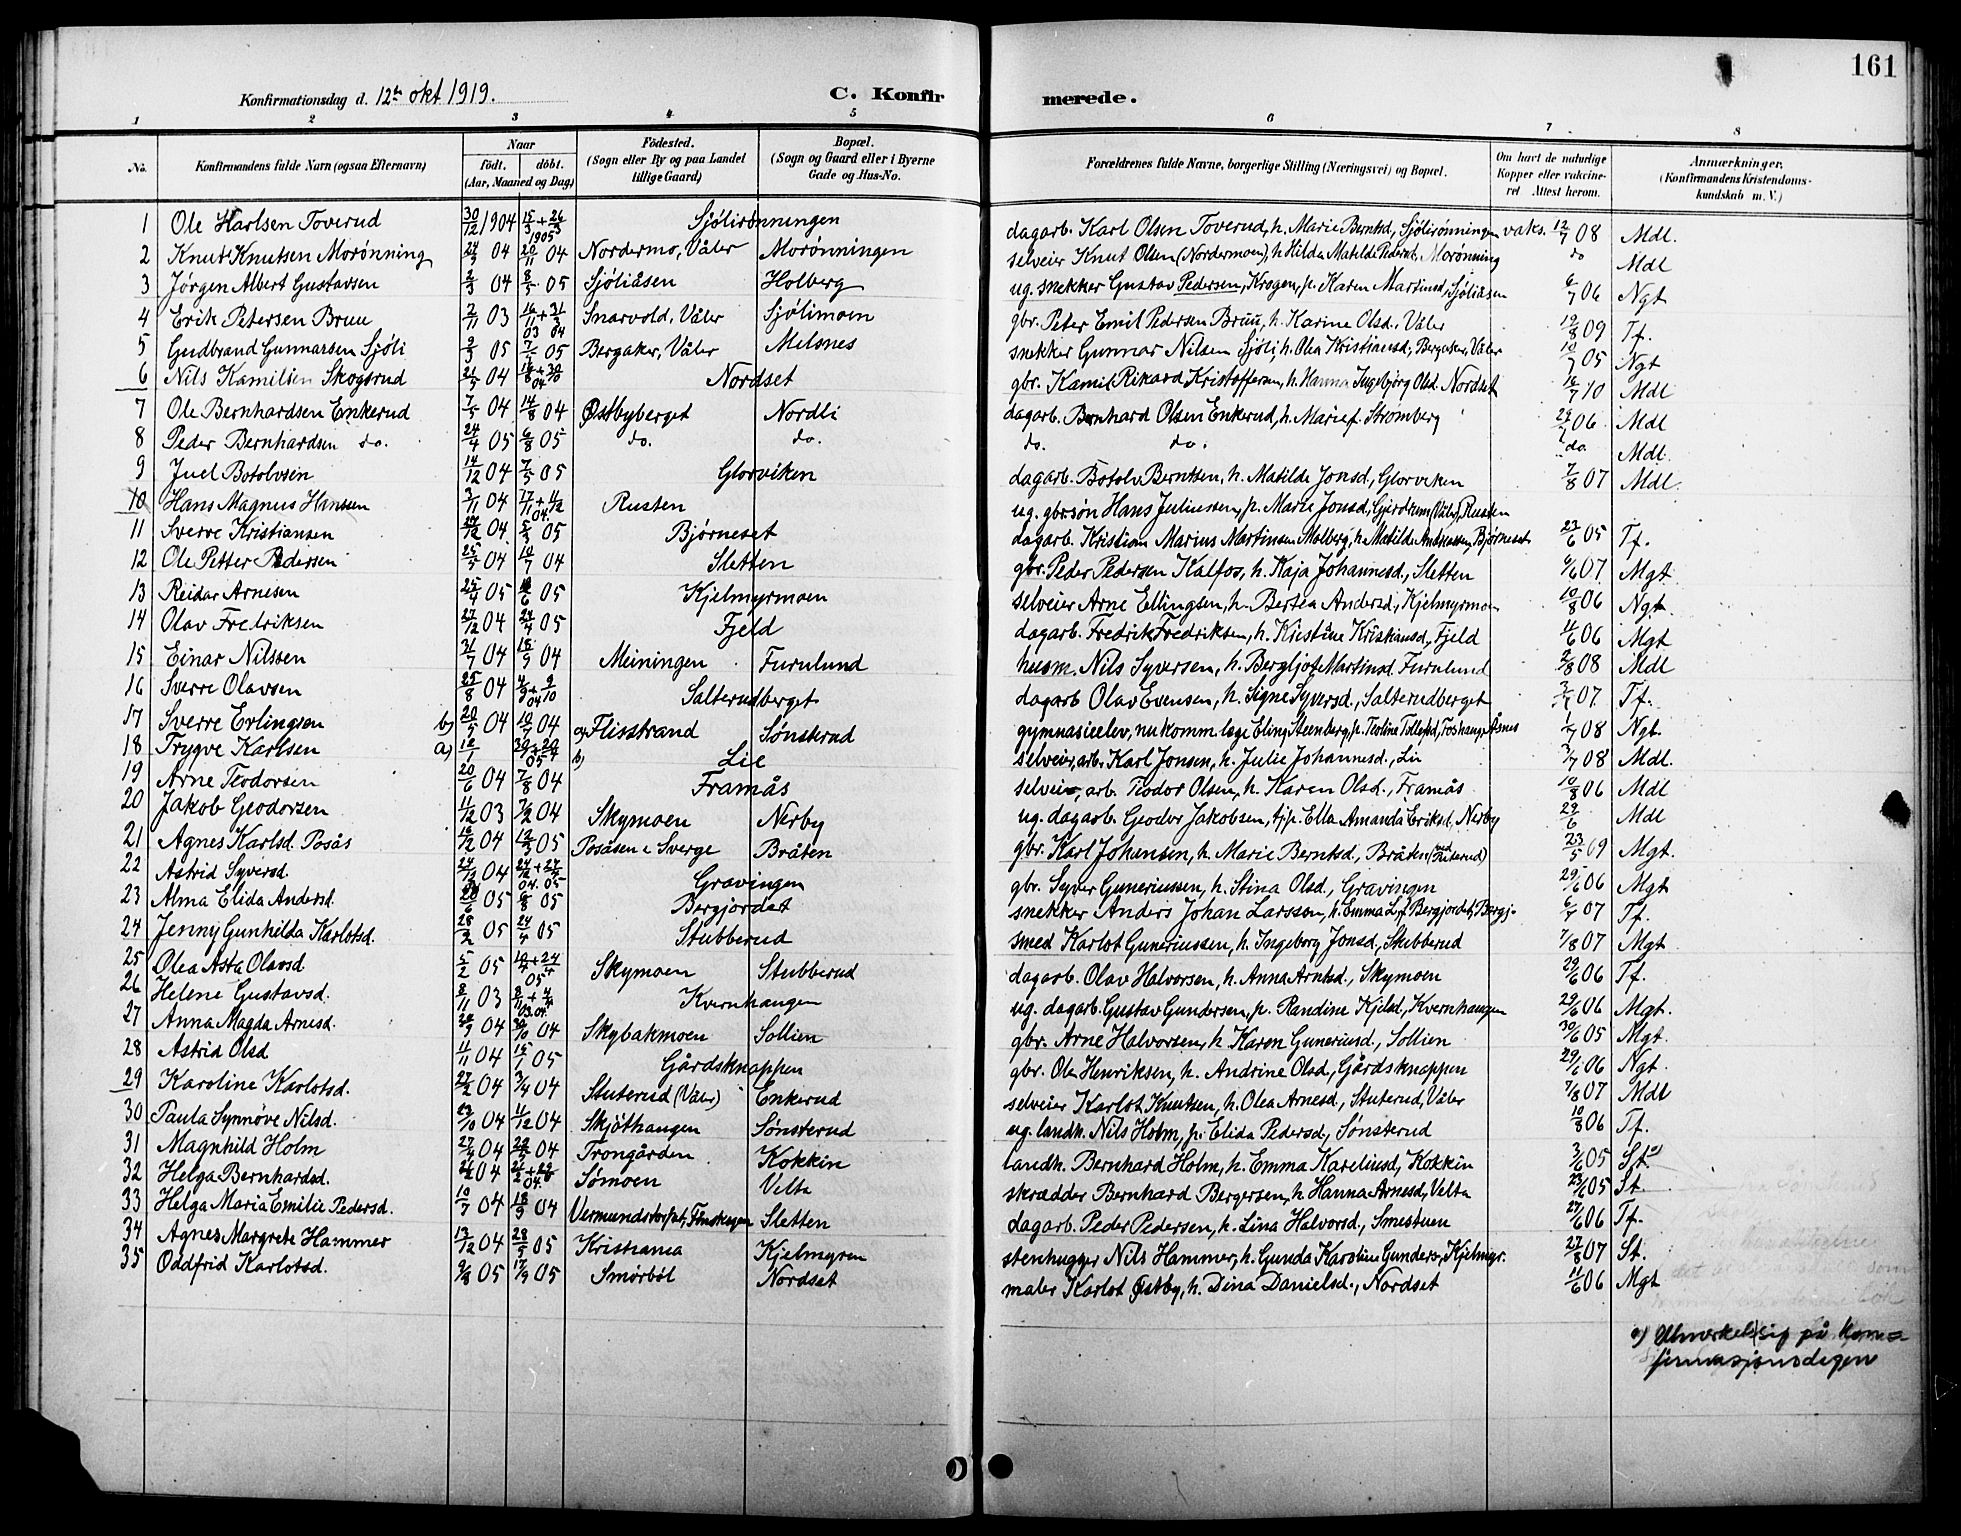 161
Konfirmationsdag d. 12te okt 1919. C. Konfirmerede.
1 2 3 4 5 6 7 8
No. Konfirmandens fulde Navn (ogsaa Efternavn) Naar født. døbt. (Aar, Maaned og Dag) Födested. (Sogn eller By og paa Landet tillige Gaard) Bopæl. (Sogn og Gaard eller i Byerne Gade og Hus-No. Forældrenes fulde Navne, borgerlige Stilling (Næringsvei) og Bopæl. Om havt de naturlige Kopper eller vaccineret. Attest herom. Anmærkninger. (Konfirmandens Kristendomskundskab m. V.)
1 Ole Karlsen Toverud 30/12 1904 15/3 + 26/3 1905 Sjølirønningen dagarb. Karl Olsen Toverud, h. Marie Berntsd, Sjølirønningen vaks. 12/7 08 Mdl.
2 Knut Knutsen Morønning 24/9 04 20/11 04 Nordermo, Våler Morønningen selveier Knut Olsen (Nordermoen), h. Hilda Matilde Pedersd. Morønning do Mdl
3 Jørgen Albert Gustavsen 2/3 04 8/5 05 Sjøliåsen Holberg ug. snekker Gustav Pedersen, Krogen, p. Karen Martinsd, Sjøliåsen 6/7 06 Ngt
4 Erik Petersen Bruu 2/11 03 16/11 03 + 31/3 04 Snarvold, Våler Sjølimoen gbr. Peter Emil Pedersen Bruu, h. Karine Olsd., Våler 19/8 09 Tf.
5 Gudbrand Gunnarsen Sjøli 9/3 05 7/5 05 Bergaker, Våler Melsnes snekker Gunnar Nilsen Sjøli, h. Olea Kristiansd, Bergaker, Våler 10/7 05 Ngt
6 Nils Kamilsen Skogsrud 21/5 04 Nordset gbr. Kamil Rikard Kristoffersen, h. Hanna Ingebjørg Olsd. Nordset 16/7 10 Mdl
7 Ole Bernhardsen Enkerud 7/5 04 14/8 04 Østbyberget Nordli dagarb. Bernhard Olsen Enkerud, h. Marie f. Strømberg 06 Mdl
8 Peder Bernhardsen do. 24/4 05 6/8 05 do. do. do. do. do. Mdl.
9 Juel Botolvsen 14/12 04 7/5 05 Glorviken dagarb. Botolv Berntsen, h. Matilde Jonsd., Glorviken 7/8 07 Mdl.
10 Hans Magnus Hansen 3/11 04 Rusten ug. gbr.søn Hans Juliussen, p. Marie Jonsd, Gjerdrum (Våler), Rusten
11 Sverre Kristiansen 27/12 04 5/3 05 Bjørneset dagarb. Kristian Marius Martinsen Molberg, h. Matilde Andreassen, Bjørneset 23/6 05 Tf.
12 Ole Petter Pedersen 25/5 04 10/7 04 Sletten gbr. Peder Pedersen Kalfos, h. Kaja Johannesd., Sletten 6/6 07 Mgt
13 Reidar Arnesen 25/4 05 6 05 Kjelmyrmoen selveier Arne Ellingsen, h. Bertea Andersd, Kjelmyrmoen 10/8 06 Ngt.
14 Olav Fredriksen 27/12 04 24/4 05 Fjeld dagarb. Fredrik Fredriksen, h. Kristine Kristiansd, Fjeld 11/6 06 Mgt
15 Einar Nilssen 31/7 04 18/9 04 Meiningen Furulund husm. Nils Syversen, h. Bergljot Martinsd. Furulund 2/8 08 Mdl
16 Sverre Olavsen 25/8 04 4/9 + 9/10 04 Salterudberget dagarb Olav Evensen, h. Signe Syversd., Salterudberget 07 Tf.
17 Sverre Erlingsen b) 20/5 04 10/7 04 a) Flisstrand Sønsterud gymnasieelev, nu komm læge Erling Steenberg, p. Teoline Tollefsd, Foshaug, Åsnes 1/7 08 Ngt.
18 Trygve Karlsen a) 12/1 05 b) Lie selveier, arb. Karl Jonsen, h. Julie Johannesd., Lie 3/7 08 Mdl.
19 Arne Teodorsen 20/6 04 7/8 04 Framås selveier, arb. Teodor Olsen, h. Karen Olsd., Framås 10/8 06 Mdl
20 Jakob Geodorsen 11/12 03 7/2 04 Skymoen Nerby ug. dagarb. Geodor Jakobsen, tjp. Ella Amanda Eriksd, Nerby 29/6 Mdl
21 Agnes Karlsd. Posås 16/12 04 12/3 05 Posåsen i Sverge Bråten gbr. Karl Johansen, h. Marie Berntsd., Bråten 23/5 09 Mgt.
22 Astrid Syversd. 24/12 04 04. 05 Gravingen gbr. Syver Guneriussen, h. Stina Olsd., Gravingen 29/6 06 Mgt
23 Alma Elida Andersd. 05 6/8 05 Bergjordet snekker Anders Johan Larssen, h. Emma L.f. Bergjordet, Bergj. 6/7 07 Tf.
24 Jenny Gunhilda Karlotsd. 28/2 05 24/4 05 Stubberud smed Karlot Guneriussen, h. Ingeborg Jonsd., Stubberud 7/8 07 Mgt
25 Olea Asta Olavsd 5/2 05 05 Skymoen Stubberud dagarb. Olav Halvorsen, h. Anna Arntsd., Skymoen 29/6 06 Tf.
26 Helene Gustavsd. 8/11 03 03 04 Kvernhaugen ug. dagarb. Gustav Gundersen, p. Randine Kjelsd, Kvernhaugen 29/6 06 Mgt.
27 Anna Magda Arnesd. 04 30/10 04 Skybakmoen Sollien gbr. Arne Halvorsen, h Karen Guneriusd, Sollien 30/6 05 Mgt.
28 Astrid Olsd 11/11 04 15/1 05 Gårdsknappen gbr. Ole Henriksen, h. Andrine Olsd, Gårdsknappen 29/6 06 Ngt.
29 Karoline Karlotsd. 27/2 04 3/4 04 Stuterud (Våler) Enkerud selveier Karlot Knutsen, h. Olea Arnesd., Stuterud, Våler 7/8 07 Mdl
30 Paula Synnøve Nilsd. 04 11/12 04 Skjøthaugen Sønsterud ug. landh. Nils Holm, p. Elida Pedersd, Sønsterud 10/8 06 Tf.
31 Magnhild Holm 04 04 Frongården Kokkin landh. Bernhard Holm, h. Emma Kareliusd, Kokkin 3/6 05 St a)
32 Helga Bernhardsd. 04 04 Sømoen Velta skrædder Bernhard Bergersen, h Hanna Arnesd, Velta 23/6 05 St.
33 Helga Maria Emilie Pedersd. 10/7 04 18/9 04 Vermundstorpet, Finskogen Sletten dagarb. Peder Pedersen, h. Lina Halvorsd., Smestuen 06 Tf.
34 Agnes Margrete Hammer 13/12 04 28/5 05 Kristiania Kjelmyren stenhugger Nils Hammer, h. Gunda Karoline Gunders, Kjelmyr. 27/8 07 St.
35 Oddfrid Karlotsd. 9/8 05 17/9 05 Smørbøl Nordset maler Karlot Østby, h. Dina Danielsd., Nordset 11/6 06 Mgt
a) Utmerket sig på konfirmasjonsdagen